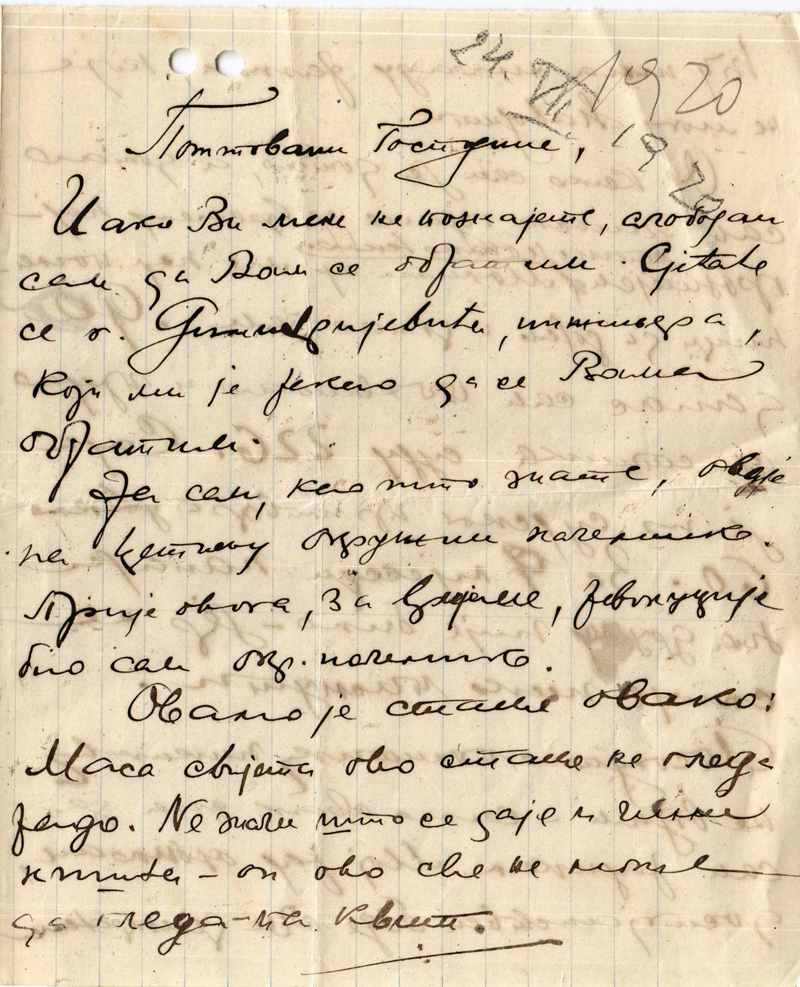 24. VII. 1920
1920
Поштовани Господине,
Иако Ви мене не познајете, слободан
сам да Вам се обратим. Сјетате
се г. Димитријевића, инжињера,
који ми је рекао да се Вама
обратим.
Ја сам, као што знате, овдје
на Цетињу окружни начелник.
Прије овога, за вријеме, револуције
био сам окр. начелник.
Овамо је стање овако:
Маса свијета ово стање не гледа
радо. Не значи што се даје и чини
- он ово све не може
да гледа - па квит.